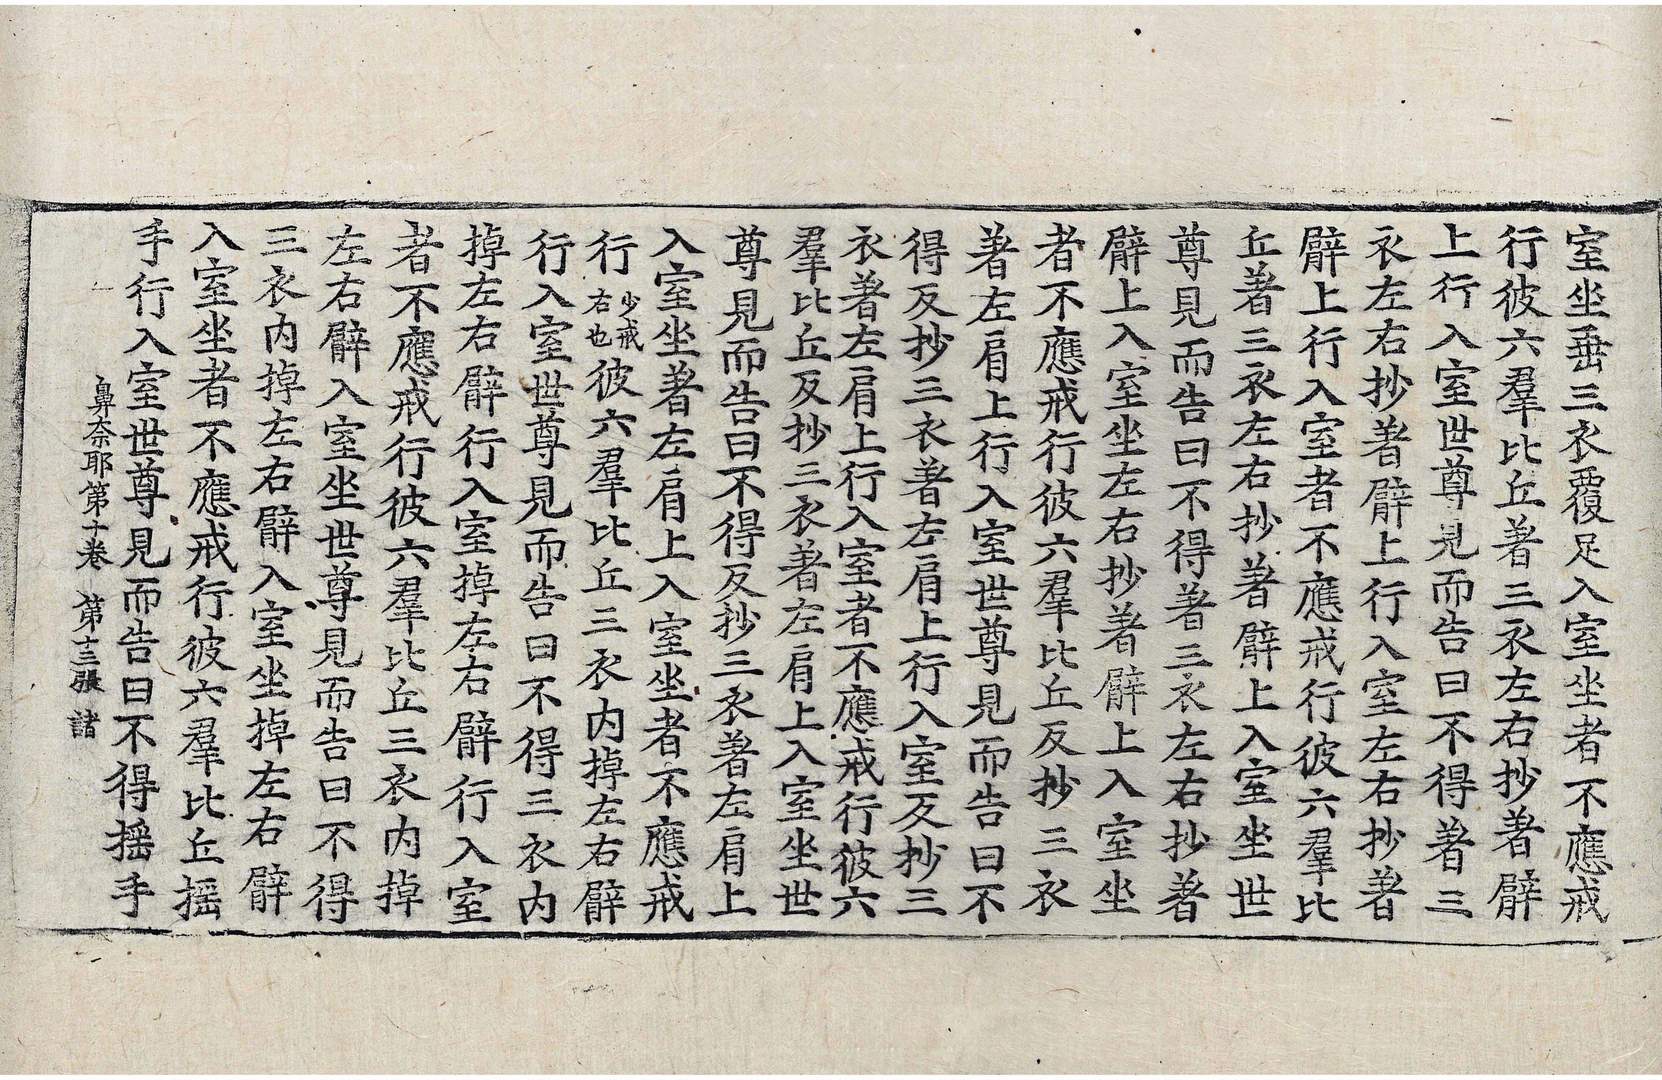 室坐垂三衣覆足入室坐者不應戒
行彼六羣比丘著三衣左右抄著臂
上行入室世尊見而告曰不得著三
衣左右抄著臂上行入室左右抄著
臂上行入室者不應戒行彼六羣比
丘著三衣左右抄著臂上入室坐世
尊見而告曰不得著三衣左右抄著
臂上入室坐左右抄著臂上入室坐
者不應戒行彼六羣比丘反抄三衣
著左肩上行入室世尊見而告曰不
得反抄三衣著左肩上行入室反抄三
衣著左肩上行入室者不應戒行彼六
羣比丘反抄三衣著左肩上入室坐世
尊見而告曰不得反抄三衣著左肩上
入室坐著左肩上入室坐者不應戒
行少戒右也彼六羣比丘三衣内掉左右臂
行入室世尊見而告曰不得三衣内
掉左右臂行入室掉左右臂行入室
者不應戒行彼六羣比丘三衣内掉
左右臂入室坐世尊見而告曰不得
三衣内掉左右臂入室坐掉左右臂
入室坐者不應戒行彼六羣比丘搖
手行入室世尊見而告曰不得搖手
鼻奈耶第十卷 第十三張 諸